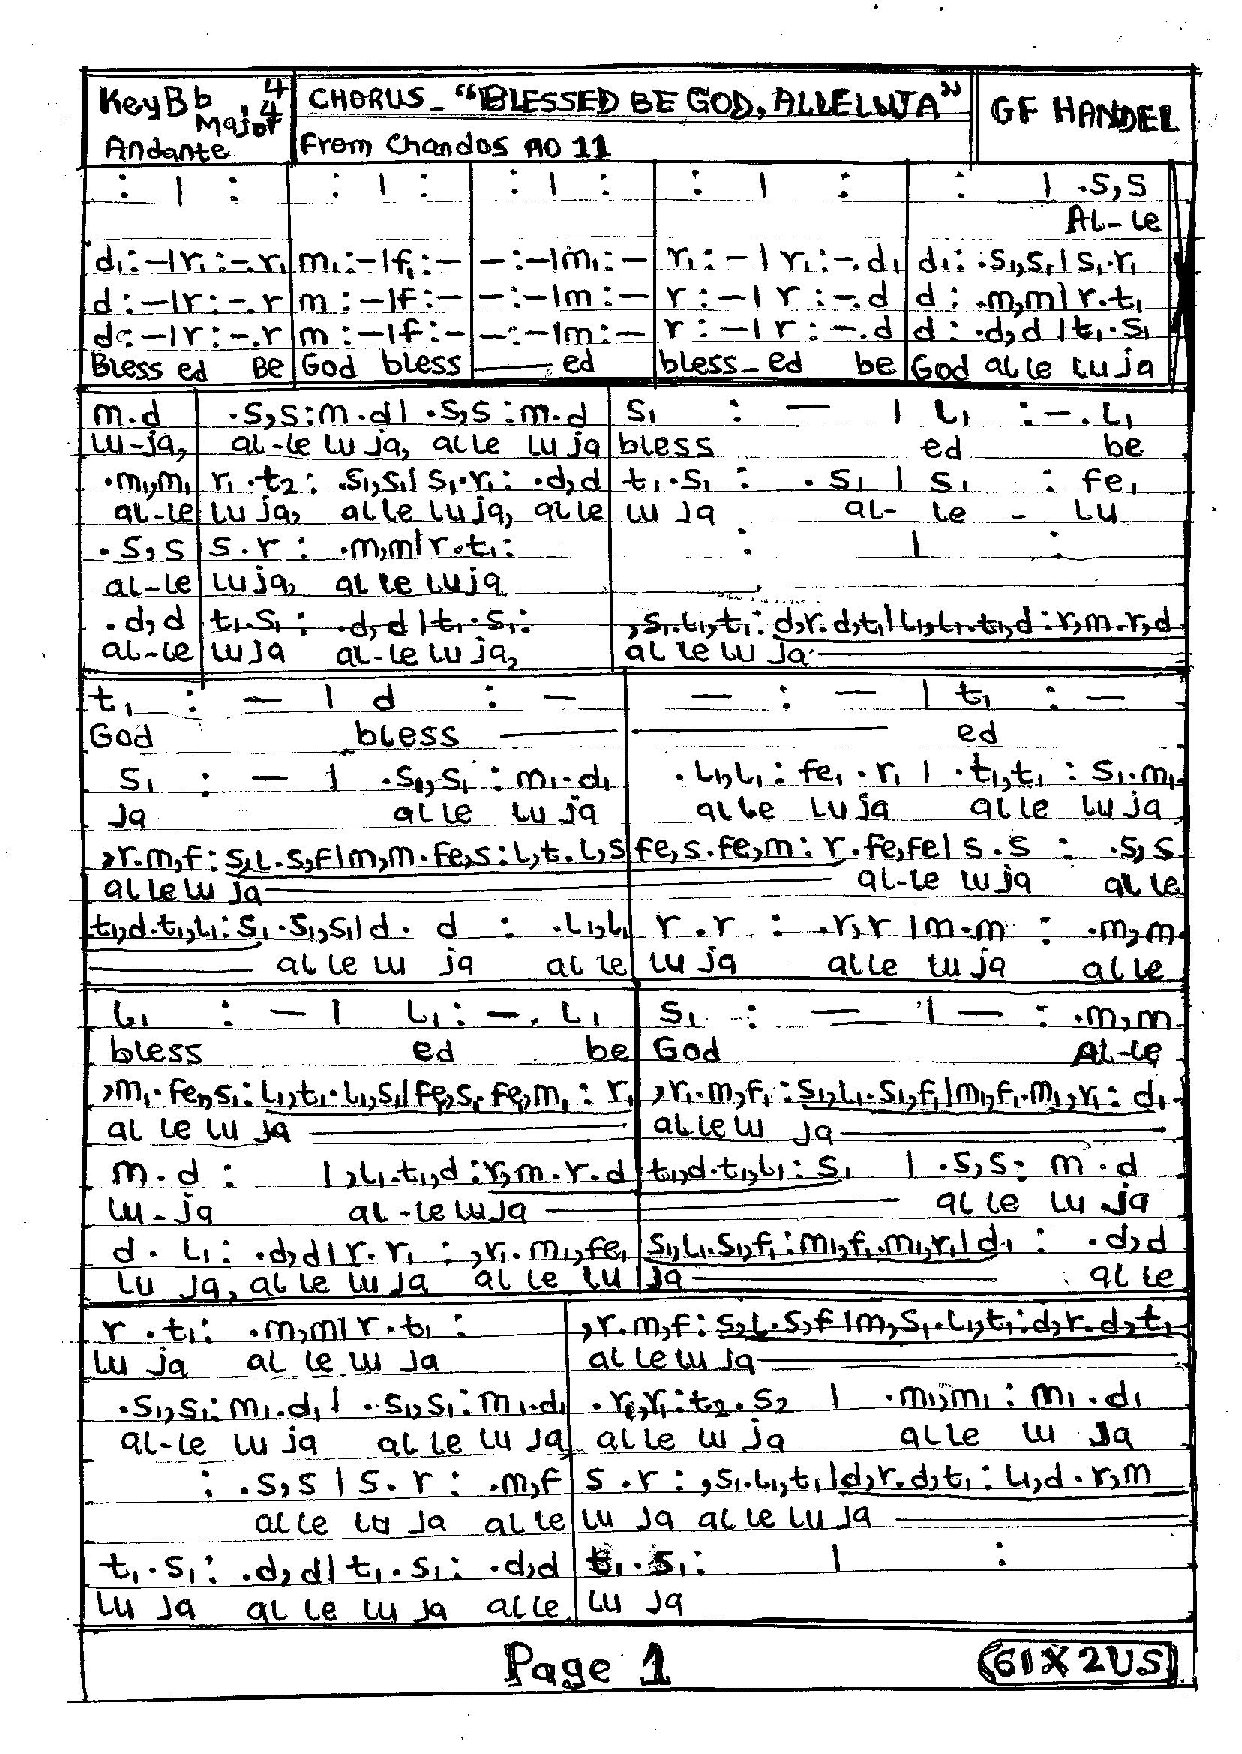 Key Bb Major . 4/4
Andante
CHORUS - "BLESSED BE GOD, ALLELUJA"
From Chandos no 11
GF HANDEL
: | : : | : : | : : | : : | .s,s
AL-le
d₁:-|r₁:-.r₁ m₁:-|f₁:- -:-|m₁:- r₁:-|r₁:-.d₁ d₁: .s₁,s₁|s₁.r₁
d:-|r:-.r m:-|f:- -:-|m:- r:-|r:-.d d: .m,m|r.t₁
d:-|r:-.r m:-|f:- -:-|m:- r:-|r:-.d d: .d,d|t₁.s₁
Bless ed Be God bless ed bless-ed be God alle luja
m.d .s,s:m.d| .s,s:m.d s₁ : - | l₁ :-.l₁
lu-ja, al-le lu ja, alle lu ja bless ed be
.m₁,m₁ r₁.t₂: .s₁,s₁|s₁.r₁: .d,d t₁.s₁: .s₁|s₁ : fe₁
al-le lu ja, alle luja, alle lu ja al- le - lu
.s,s s.r: .m,m|r.t₁: : | :
al-le luja, alle luja
.d,d t₁.s₁: .d,d|t₁.s₁: ,s₁.l₁,t₁:d,r.d,t₁|l₁,l₁.t₁,d:r,m.r,d
al-le luja al-le luja, al le lu ja
t₁ : - | d : - - : - | t₁ : -
God bless ed
s₁ : - | .s₁,s₁:m₁.d₁ .l₁,l₁:fe₁.r₁ | .t₁,t₁:s₁.m₁
ja alle lu ja alle lu ja alle lu ja
,r.m,f:s,l.s,f|m,m.fe,s:l,t.l,s fe,s.fe,m:r.fe,fe|s.s : .s,s
al le lu ja al-le lu ja al le
t₁,d.t₁,l₁:s₁.s₁,s₁|d. d : .l₁,l₁ r.r : .r,r|m.m : .m,m
al le lu ja al le lu ja alle lu ja alle
l₁ : - | l₁:-.l₁ s₁ : - | - : .m,m
bless ed be God AL-le
,m₁.fe₁,s₁:l₁,t₁.l₁,s₁|fe₁,s₁.fe₁,m₁:r₁ ,r₁.m₁,f₁:s₁,l₁.s₁,f₁|m₁,f₁.m₁,r₁:d₁
al le lu ja al le lu ja
m.d : |,l₁.t₁,d:r,m.r.d t₁,d.t₁,l₁:s₁ | .s,s: m.d
lu-ja al-le luja al le lu ja
d.l₁: .d,d|r.r₁:,r₁.m₁,fe₁ s₁,l₁.s₁,f₁:m₁,f₁.m₁,r₁|d₁ : .d,d
lu ja, al le lu ja al le lu ja al le
r.t₁: .m,m|r.t₁: ,r.m,f:s,l.s,f|m,s₁.l₁,t₁:d,r.d,t₁
lu ja al le lu ja al le lu ja
.s₁,s₁:m₁.d₁| .s₁,s₁:m₁.d₁ .r₁,r₁:t₂.s₂ | .m₁,m₁:m₁.d₁
al-le lu ja al le lu ja al le lu ja alle lu ja
: .s,s|s.r: .m,f s.r:,s₁.l₁,t₁|d,r.d,t₁:l₁,d.r,m
al le lu ja alle lu ja al le lu ja
t₁.s₁: .d,d|t₁.s₁: .d,d t₁.s₁: | :
lu ja al le lu ja alle lu ja
Page 1
(61X2US)